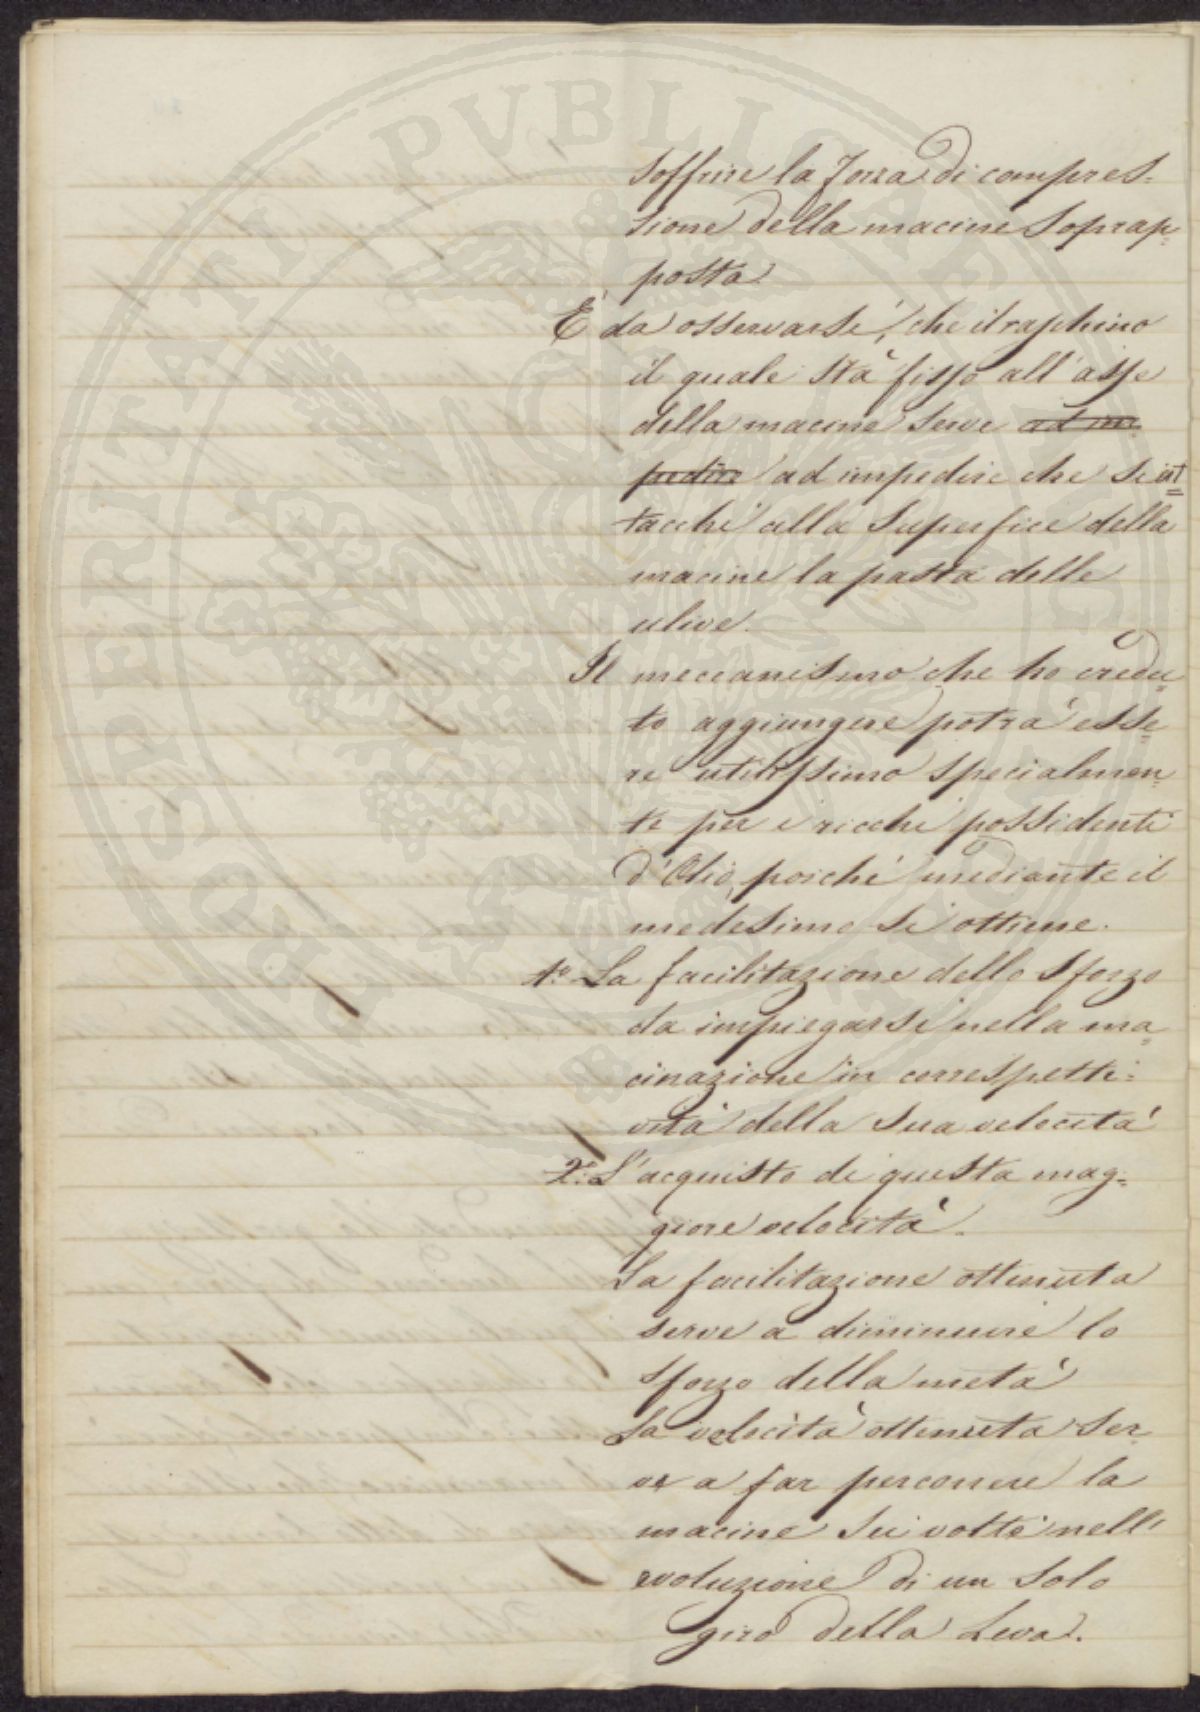 soffrire la forza di compres-
sione della macine soprap-
posta.
È da osservarsi, che il raphino
il quale stà fisso all'asse
della macine serve ad im
pedire ad impedire che si at
tacchi alla superfice della
macine la pasta delle
ulive.
Il meccanismo che ho credu
to aggiungere potrà esse
re utilissimo specialmen
te per i ricchi possidenti
d'Olio, poichè mediante il
medesimo si ottiene.
1.º La facilitazione dello sforzo
da impiegarsi nella ma
cinazione in correspetti-
vità della sua velocità
2.º L'acquisto di questa mag-
giore velocità.
La facilitazione ottenuta
serve a diminuire lo
sforzo della metà
La velocità ottenuta ser
ve a far percorrere la
macine sei volte nell'
evoluzione di un solo
giro della Leva.
PROSPERITATI PUBLICAE